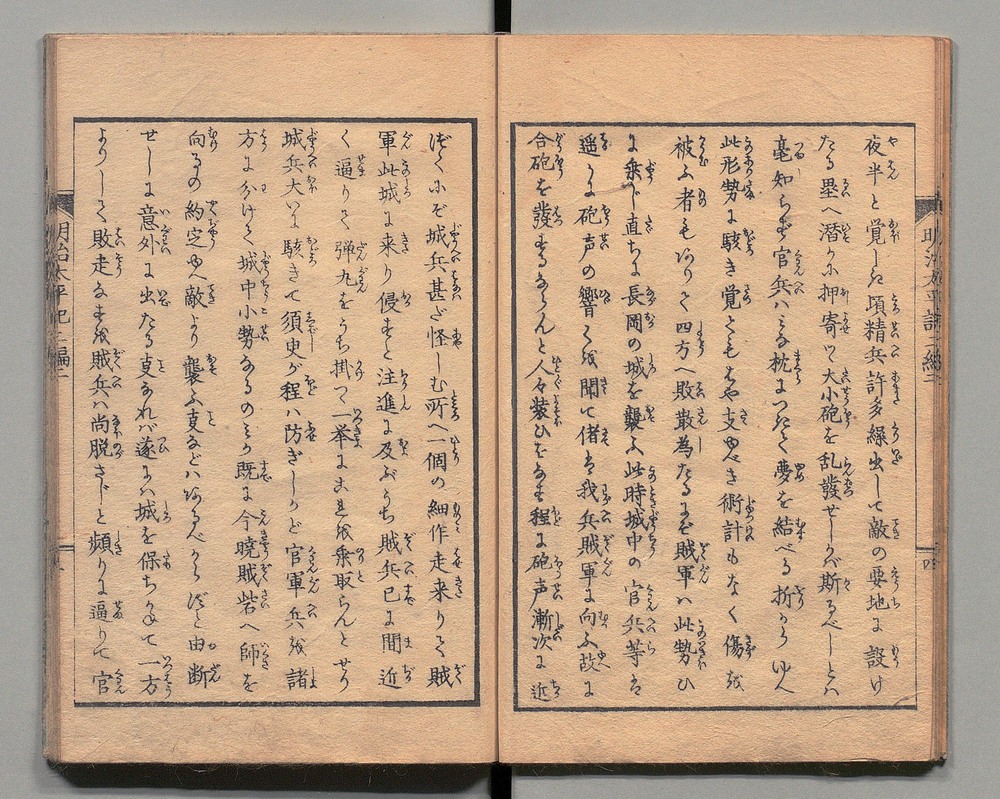 夜半と覚しき頃精兵許多繰出して敵の要地に設け
たる塁へ潜かに押寄せて大小砲を乱発せしかバ斯るべしとハ
毫知らぬ官兵ハミな枕につきて夢を結べる折から ゆへ
此形勢に駭き覚とも はや支ゆべき術計もなく傷を
被ふ者もありて四方へ敗散為たるにぞ賊軍ハ此勢ひ
に乗じ直ちに長岡の城を襲ふ此時城中の官兵等ハ
遥に砲声の響くを聞て偖ハ我兵賊軍に向ふ故に
合砲を發するならんと人々装ひをなす程に砲声漸次に近
づくにぞ城兵甚だ怪しむ所へ一個の細作走来りて賊
軍此城に来り侵すと注進に及ぶうち賊兵已に間近
く逼りて弾丸をうち掛つ一挙にこれを乗取らんとせり
城兵大いに駭きて須臾が程ハ防ぎしかど官軍兵を諸
方に分けて城中小勢なるのミか既に今暁賊砦へ師を
向るの約定ゆへ敵より襲ふ事などハあるべからずと由断
せしに意外に出たる事なれバ遂にハ城を保ちかねて一方
よりして敗走なすを賊兵ハ尚脱さじと頻りに逼りて官
明治太平記二編二
四
明治太平記二編二